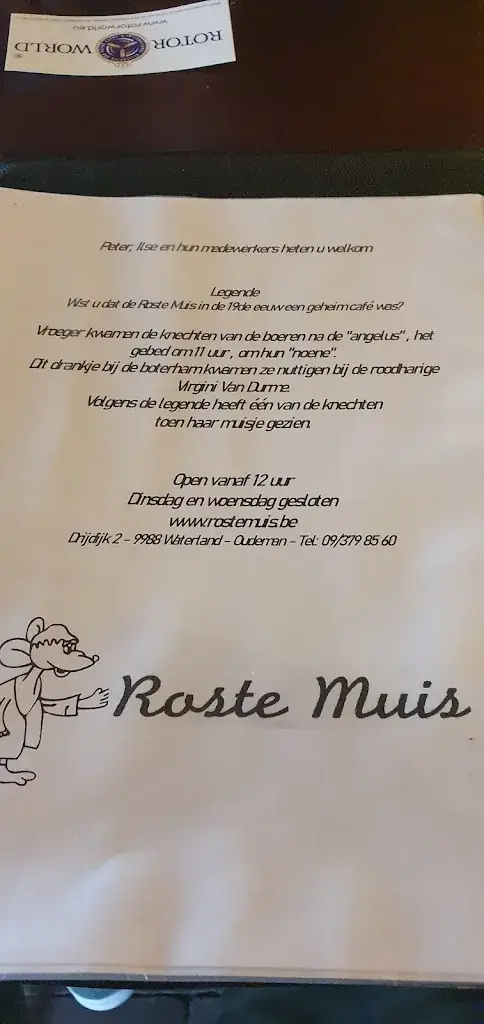 ROTOR WORLD®
www.rotorworld.eu
Peter, Ilse en hun medewerkers heten u welkom
Legende
Wist u dat de Roste Muis in de 19de eeuw een geheim café was?
Vroeger kwamen de knechten van de boeren na de "angelus" , het
gebed om 11 uur , om hun "noene".
Dit drankje bij de boterham kwamen ze nuttigen bij de roodharige
Virgini Van Durme.
Volgens de legende heeft één van de knechten
toen haar muisje gezien.
Open vanaf 12 uur
Dinsdag en woensdag gesloten
www.rostemuis.be
Drijdijk 2 - 9988 Waterland - Oudeman - Tel: 09/379 85 60
Roste Muis